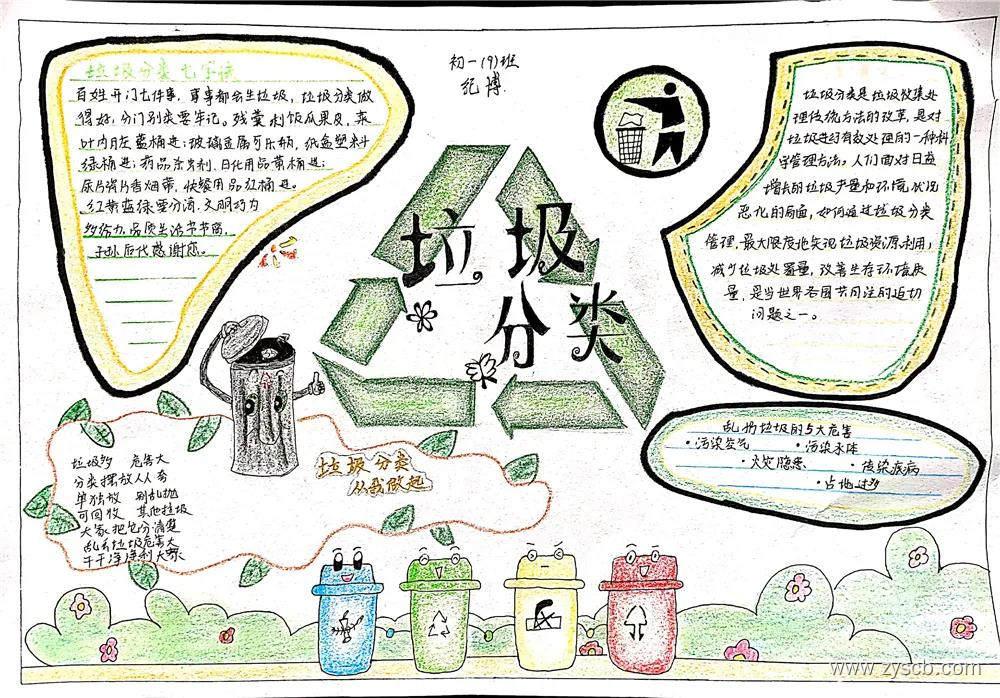 垃圾分类七字诀
百姓开门七件事，事事都会生垃圾，垃圾分类做
得好，分门别类要牢记。残羹剩饭瓜果皮，菜
叶内脏蓝桶进；玻璃金属可乐瓶，纸盒塑料
绿桶进；药品杀虫剂、日化用品黄桶进；
尿片瓷片香烟蒂，快餐用品红桶进。
红黄蓝绿要分清，文明巧为
多给力，品质生活节节高，
子孙后代感谢您。
初一（9）班
纪博
垃圾分类是垃圾收集处
理传统方法的改革，是对
垃圾进行有效处理的一种科
学管理方法，人们面对日益
增长的垃圾产量和环境状况
恶化的局面，如何通过垃圾分类
管理，最大限度地实现垃圾资源利用，
减少垃圾处置量，改善生存环境质
量，是当世界各国共同关注的迫切
问题之一。
垃圾
分类
垃圾多 危害大
分类摆放人人夸
单独放 别乱抛
可回收 其他垃圾
大家把它分清楚
乱丢垃圾危害大
干干净净利大家
垃圾分类
从我做起
乱扔垃圾的5大危害
·污染空气 ·污染水体
·火灾隐患 ·传染疾病
·占地过多
www.zyscb.com